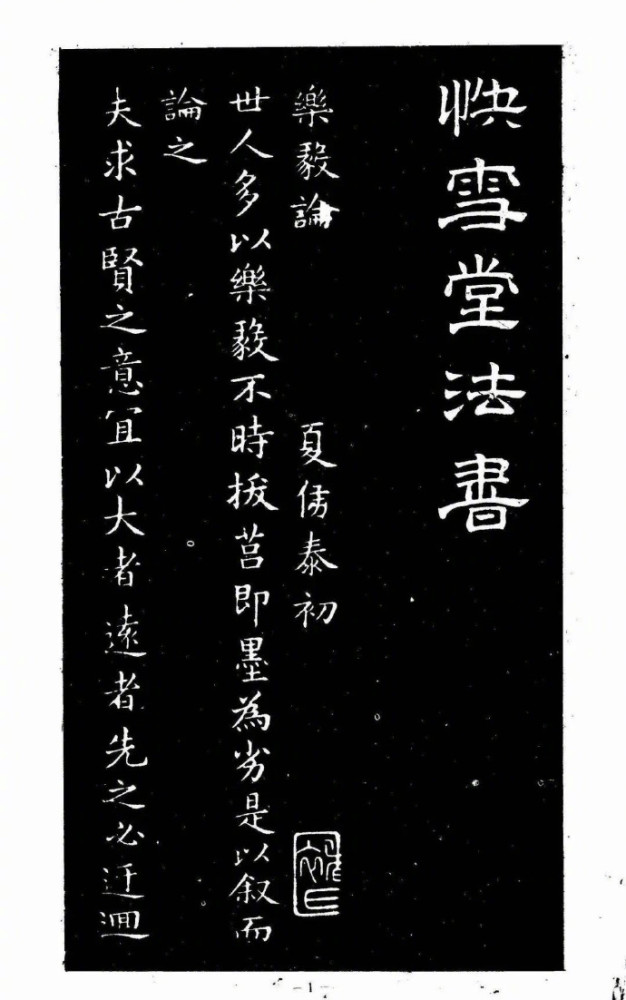 快雪堂法書
樂毅論 夏侯泰初
世人多以樂毅不時拔莒即墨為劣是以叙而
論之
夫求古賢之意宜以大者遠者先之必迂迴
- 1 -